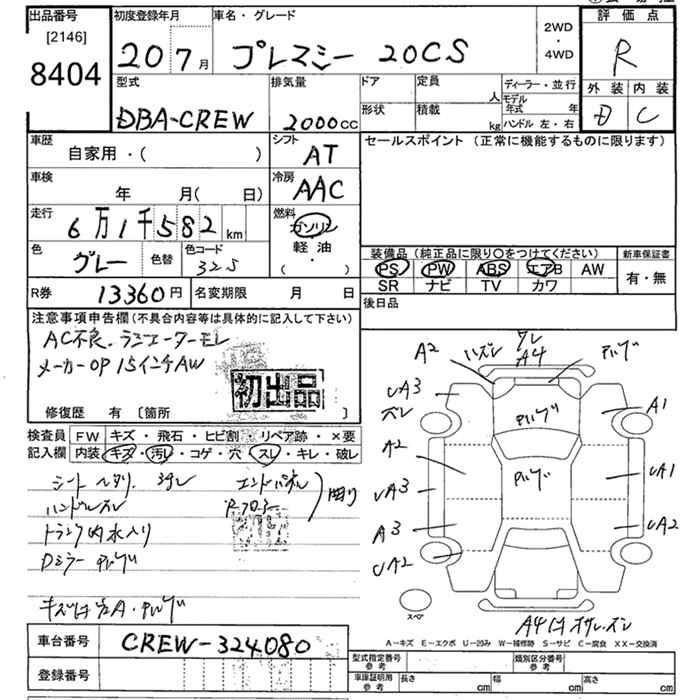 出品番号 初度登録年月 車名・グレード 2WD・4WD 評価点
[2146]
8404 20 7月 プレマシー 20CS R
型式 排気量 ドア 定員 人 ディーラー・並行 外装 内装
DBA-CREW 2000cc 形状 積載 kg モデル年式 年 ハンドル 左・右 D C
車歴 自家用・( ) シフト AT セールスポイント (正常に機能するものに限ります)
車検 年 月( 日) 冷房 AAC
走行 6万1千582 km 燃料 ガソリン 軽油 ・( )
色 グレー 色替 色コード 32S
装備品 (純正品に限り○をつけてください) 新車保証書
PS PW ABS エアB AW 有・無
SR ナビ TV カワ
R券 13360円 名変期限 月 日 後日品
注意事項申告欄 (不具合内容等は具体的に記入して下さい)
AC不良、ラジエーターモレ
メーカーOP 15インチAW
初出品
修復歴 有 [箇所 ]
検査員記入欄 FW キズ・飛石・ヒビ割・リペア跡・×要
内装 キズ・汚レ・コゲ・穴・スレ・キレ・破レ
シート ヘタリ エンドパネル
ハンドルスレ Rフロアー
トランク内水入り
Dミラー
A2 ハズレ ワレ A4
UA3 ズレ A1
A2 UA1
UA3
A3 UA2
UA2
スペア
車台番号 CREW-324080
A-キズ E-エクボ U-凹み W-補修跡 S-サビ C-腐食 XX-交換済
登録番号 型式指定番号 参考 類別区分番号 参考
車庫証明用 参考 長さ cm 幅 cm 高さ cm